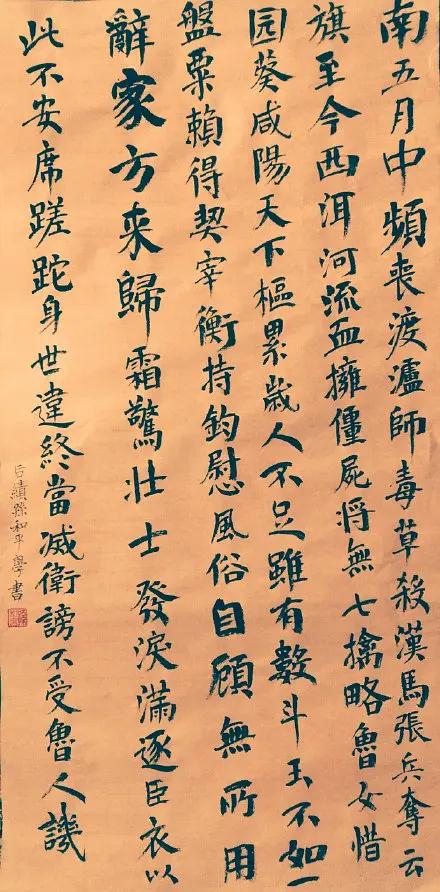 南五月中頻喪渡瀘師毒草殺漢馬張兵奪云
旗至今西洱河流血擁僵屍将無七擒略魯女惜
园葵咸陽天下樞累歲人不足雖有數斗玉不如一
盤粟賴得契宰衡持鈞慰風俗自顧無所用
辭家方来歸霜驚壮士發淚滿逐臣衣以
此不安席蹉跎身世違終當滅衛謗不受魯人譏
和平學書